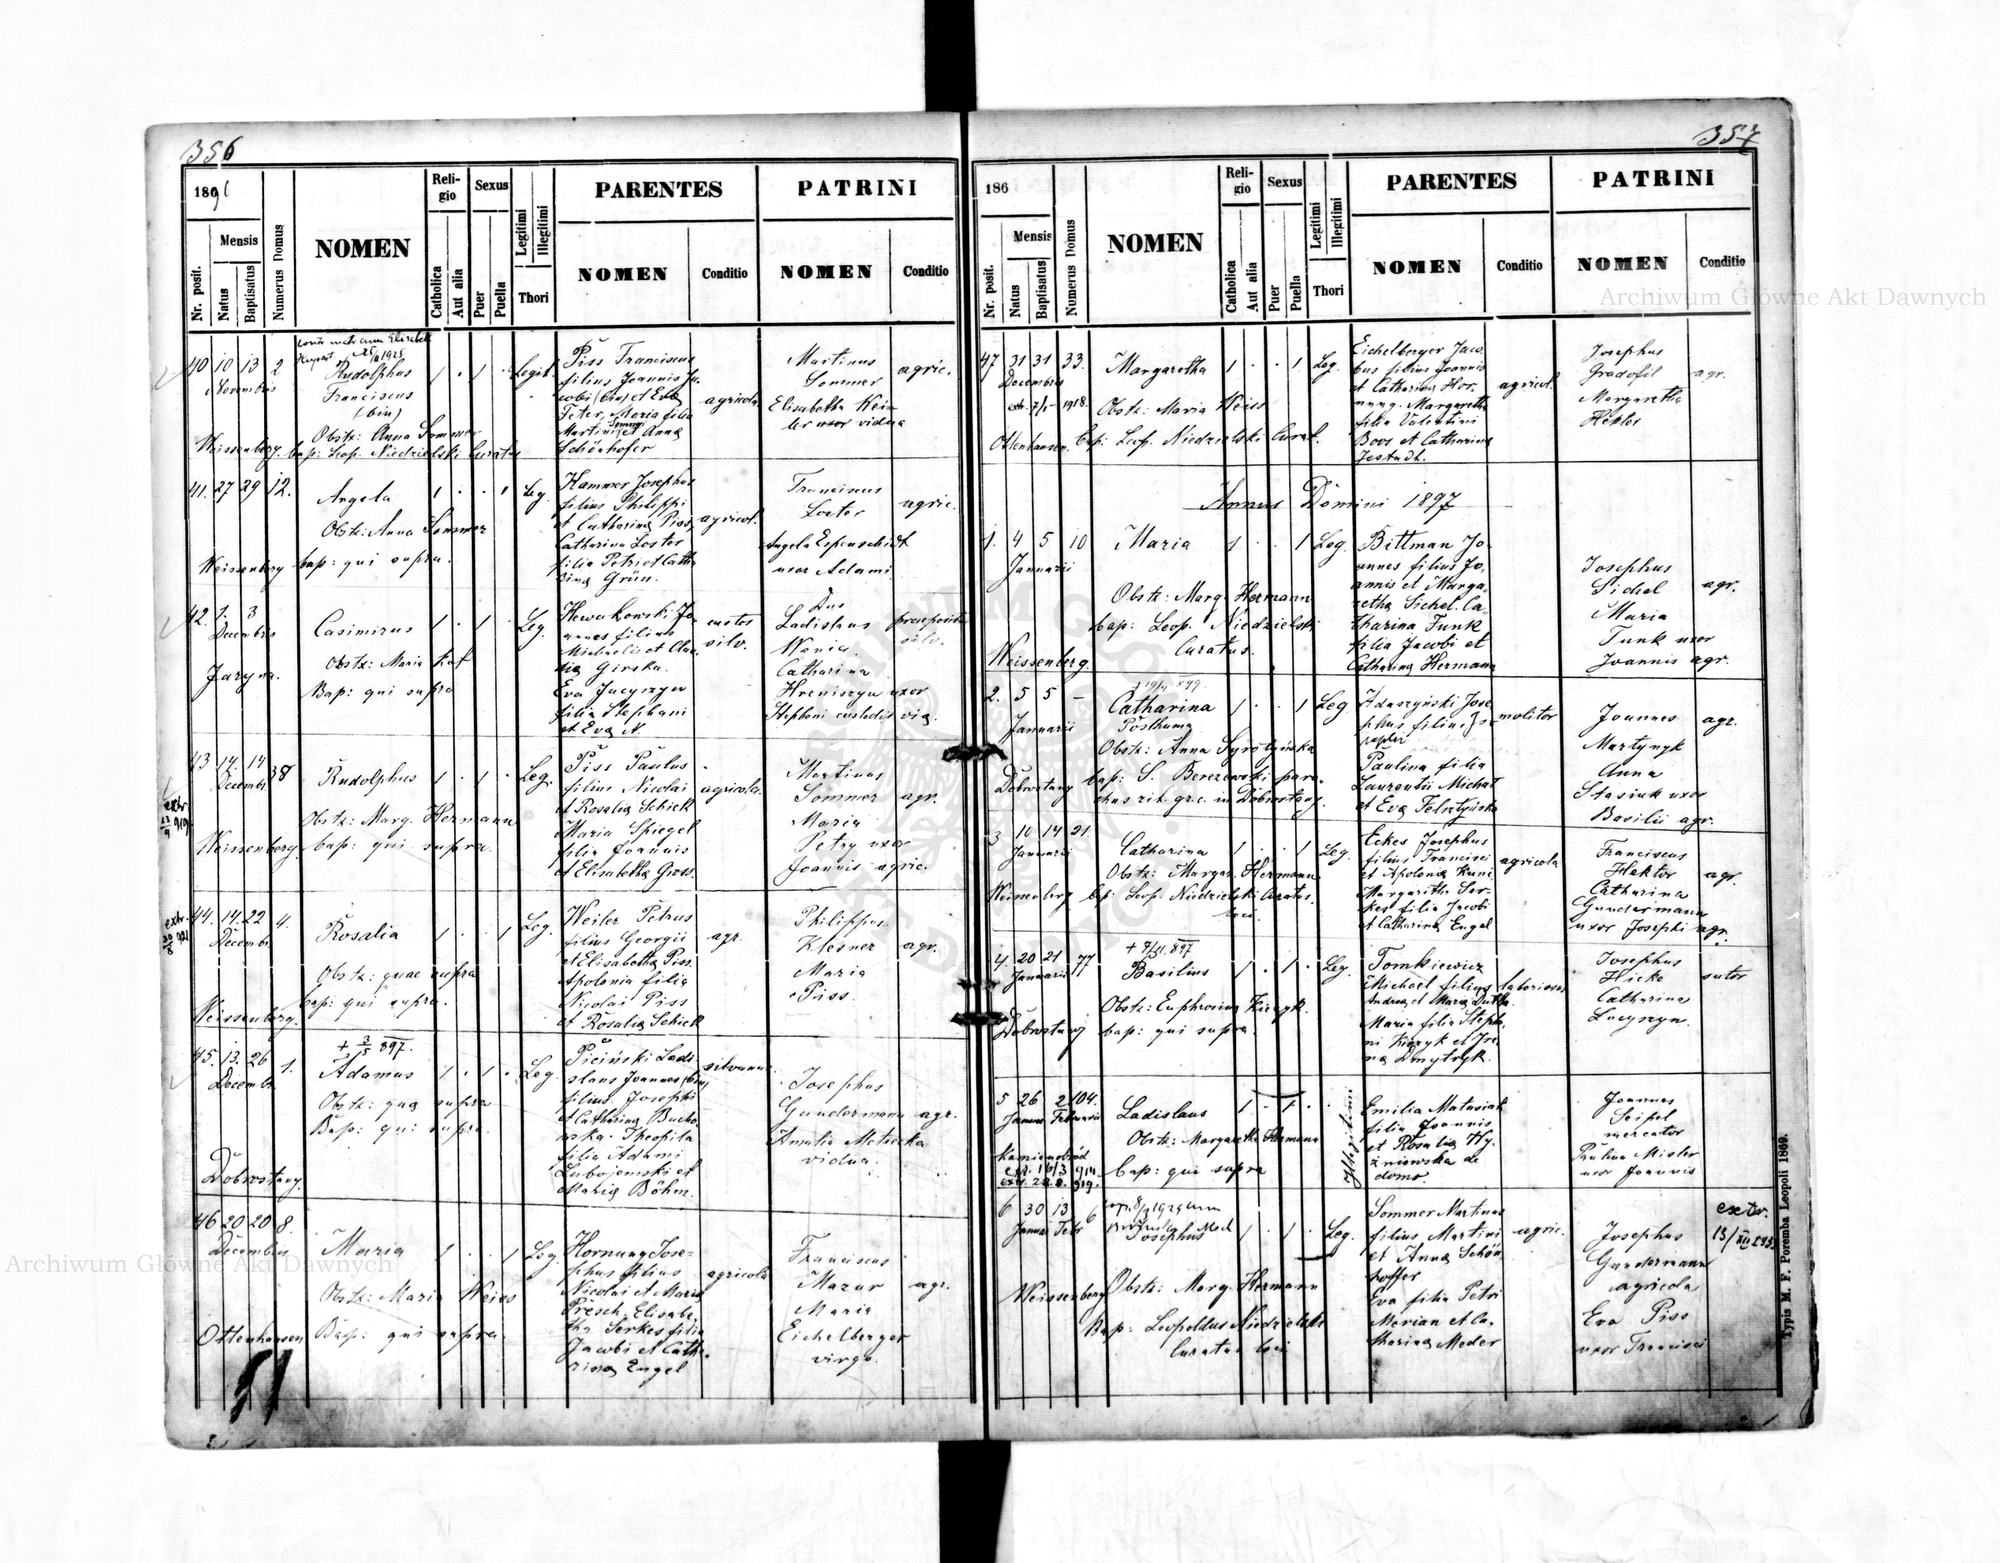 356
1896
Mensis
Nr. posit.
Natus
Baptisatus
Numerus Domus
NOMEN
Religio
Catholica
Aut alia
Sexus
Puer
Puella
Legitimi
Illegitimi
Thori
PARENTES
NOMEN
Conditio
PATRINI
NOMEN
Conditio
40 10 13 2
Novembris
Rudolphus
Franciscus
(bin)
Obstr: Anna Sommer
Weissenberg. bap: Leop. Niedzielski Curatus
1 . 1 . Legit.
Piss Franciscus
filius Joannis Ja-
cobi (bin) et Eva
Feter, Maria filia
Martini Sommer et Anna
Schönhofer
agricola
Martinus
Sommer
agric.
Elisabetha
uxor vidua
41. 27 29 12.
Angela
1 . . 1 Leg.
Obstr: Anna Sommer
Weissenberg bap: qui supra.
Hammer Josephus
filius Philippi
et Catharina Piss,
Catharina Loster
filia Petri et Catha
rina Grün.
agricol.
Franciscus
Loster
agric.
Angela Espenschidt
uxor Adami
42. 1. 3
Decembris
Casimirus
1 . 1 . Leg.
Obstr: Maria
Jaryna.
Bap: qui supra
Joannes filius
Michaelis et
Girska.
Eva Jacyszyn
filia Stephani
et Eva N.
custos
silv.
Dus
Ladislaus
Wania.
Catharina
Hreniszyn uxor
Stephani custodis via.
43 14. 14 38
Decembr.
Rudolphus
1 . 1 . Leg.
Obstr: Marg. Hermann
Weissenberg. bap: qui supra.
extr.
Piss Paulus
filius Nicolai
et Rosalia Schick
Maria Spiegel
filia Joannis
et Elisabetha Gross.
agricola.
Martinus
Sommer agr.
Maria
Petry uxor
Joannis agric.
44. 14. 22 4.
Decemb.
Rosalia
1 . . 1 Leg.
Obstr: quae supra
Weissenberg. bap: qui supra.
extr.
Weiler Petrus
filius Georgii
et Elisabetha Piss.
Apolonia filia
Nicolai Piss
et Rosalia Schick
agr.
Philippus
Klesner
agr.
Maria
Piss.
+ 3/5 897.
45. 13. 26 1.
Decemb.
Adamus
1 . 1 . Leg.
Obstr: qua supra
Bap: qui supra.
Dobrostany.
Piciński Ladi-
slaus Joannes (bin)
filius Josephi
et Catharina Bucho-
wska. Theophila
filia Adami
Lubojemski et
Maria Böhm.
silvanus
Josephus
Gundermann agr.
Amalia
vidua.
46 20 20 8.
Decembris
Maria
1 . . 1 Leg.
Obstr: Maria Weiss
Ottenhausen Bap: qui supra.
Hornung Jose-
phus filius
Nicolai et Maria
Presch Elisabe-
tha Serkes filia
Jacobi et Catha-
rina Engel
agricola
Franciscus
Mazur
agr.
Maria
Eichelberger
virgo.
357
186
Mensis
Nr. posit.
Natus
Baptisatus
Numerus Domus
NOMEN
Religio
Catholica
Aut alia
Sexus
Puer
Puella
Legitimi
Illegitimi
Thori
PARENTES
NOMEN
Conditio
PATRINI
NOMEN
Conditio
47 31 31 33.
Decembris
Margaretha
1 . . 1 Leg.
Obstr: Maria Weiss
Ottenhausen. bap: Leop. Niedzielski Curat.
Eichelberger Jaco-
bus filius Joannis
et Catharina Hor-
nung. Margaretha
filia Valentini
Boos et Catharina
Jestadt.
agricol.
Josephus
Gradofil
agr.
Margaretha
Hektor
Annus Domini 1897
1. 4 5 10
Januarii
Maria
1 . . 1 Leg.
Obstr: Marg. Hermann
bap: Leop. Niedzielski
Curatus.
Weissenberg.
Bittman Jo-
annes filius Jo-
annis et Marga-
retha Sichel. Ca-
tharina Funk
filia Jacobi et
Catharina Hermann
Josephus
Sichel
agr.
Maria
Funk uxor
Joannis agr.
2. 5 5 -
Januarii
Catharina
Posthuma
1 . . 1 Leg.
Obstr: Anna
Dobrostany bap: S. Berezowski paro-
chus rit. gr. c. in Dobrostany.
Josephus filius
Paulina filia
Laurentii Michat
et Eva Felsztyńska
molitor
Joannes
agr.
Martynyk
Anna
Stasiuk uxor
Basilii agr.
3 10 14 21.
Januarii
Catharina
1 . . 1 Leg.
Obstr: Margar. Hermann
Weissenberg bp: Leop. Niedzielski Curatus
loci
Eckes Josephus
filius Francisci
et Apolonia Kuni
Margaretha Ser-
kes filia Jacobi
et Catharina Engel
agricola
Franciscus
Hektor
agr.
Catharina
Gundermann
uxor Josephi agr.
4. 20 21 77
Januarii
Basilius
1 . 1 . Leg.
Obstr: Euphrosina Kiczyk.
Dobrostany bap: qui supra.
Tomkiewicz
Michael filius
Andrea et Maria Dutka.
Maria filia Stepha-
ni Kiczyk et Ire-
na Dmytryk.
laboriosus
Josephus
Hicke
sutor
Catharina
Lucyszyn.
5 26 2 104.
Januar Februarii
Ladislaus
1 . 1 .
Illegitimi
Obstr: Margaretha Hermann
Kamienobród
bap: qui supra
Emilia Matusiak
filia Joannis
et Rosalia Wy-
żniewska de
domo.
Joannes
Seifel
mercator
Paulina Misler
uxor Joannis
6 30 13 6
Januar Febr
Josephus
1 . 1 . Leg.
Obstr: Marg. Hermann
Weissenberg
Bap: Leopoldus Niedzielski
Curatus loci
Sommer Martinus
filius Martini
et Anna Schön-
hoffer
Eva filia Petri
Merian et Ca-
tharina Meder
agric.
Josephus
Gundermann
agricola
Eva Piss
uxor Francisci
extr.
Typis M. F. Poremba Leopoli 1869.
Archiwum Główne Akt Dawnych
Archiwum Główne Akt Dawnych